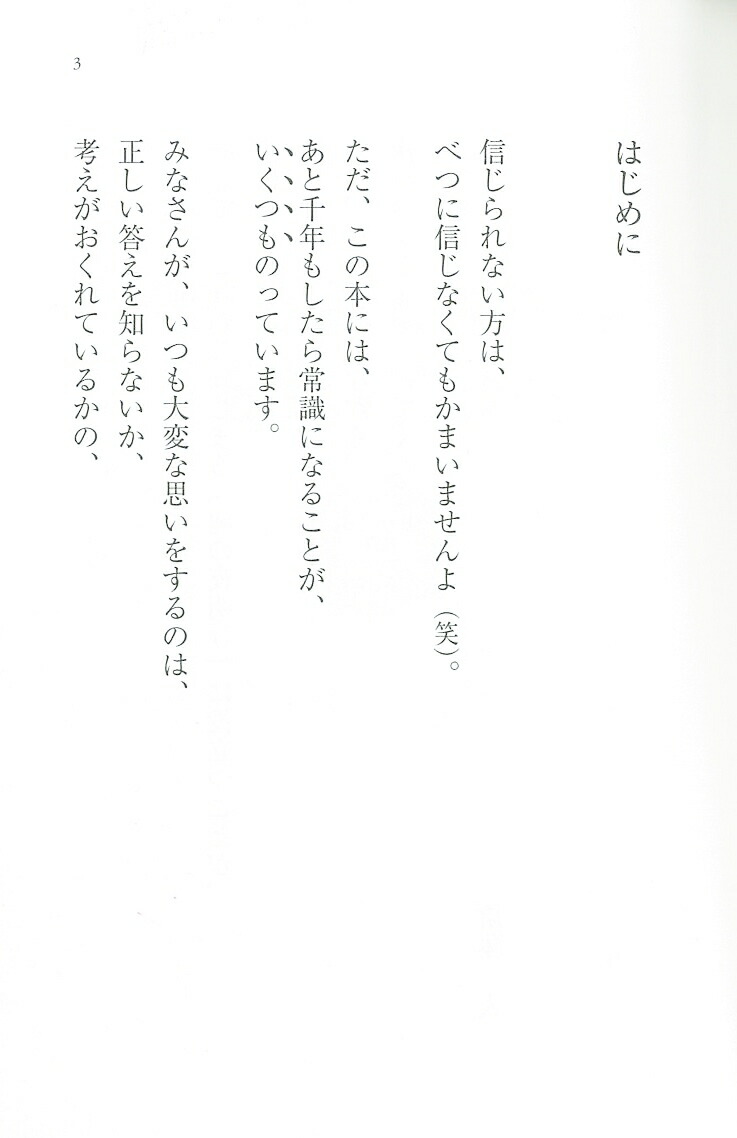 はじめに
信じられない方は、
べつに信じなくてもかまいませんよ（笑）。
ただ、この本には、
あと千年もしたら常識になることが、
いくつものっています。
みなさんが、いつも大変な思いをするのは、
正しい答えを知らないか、
考えがおくれているかの、
3